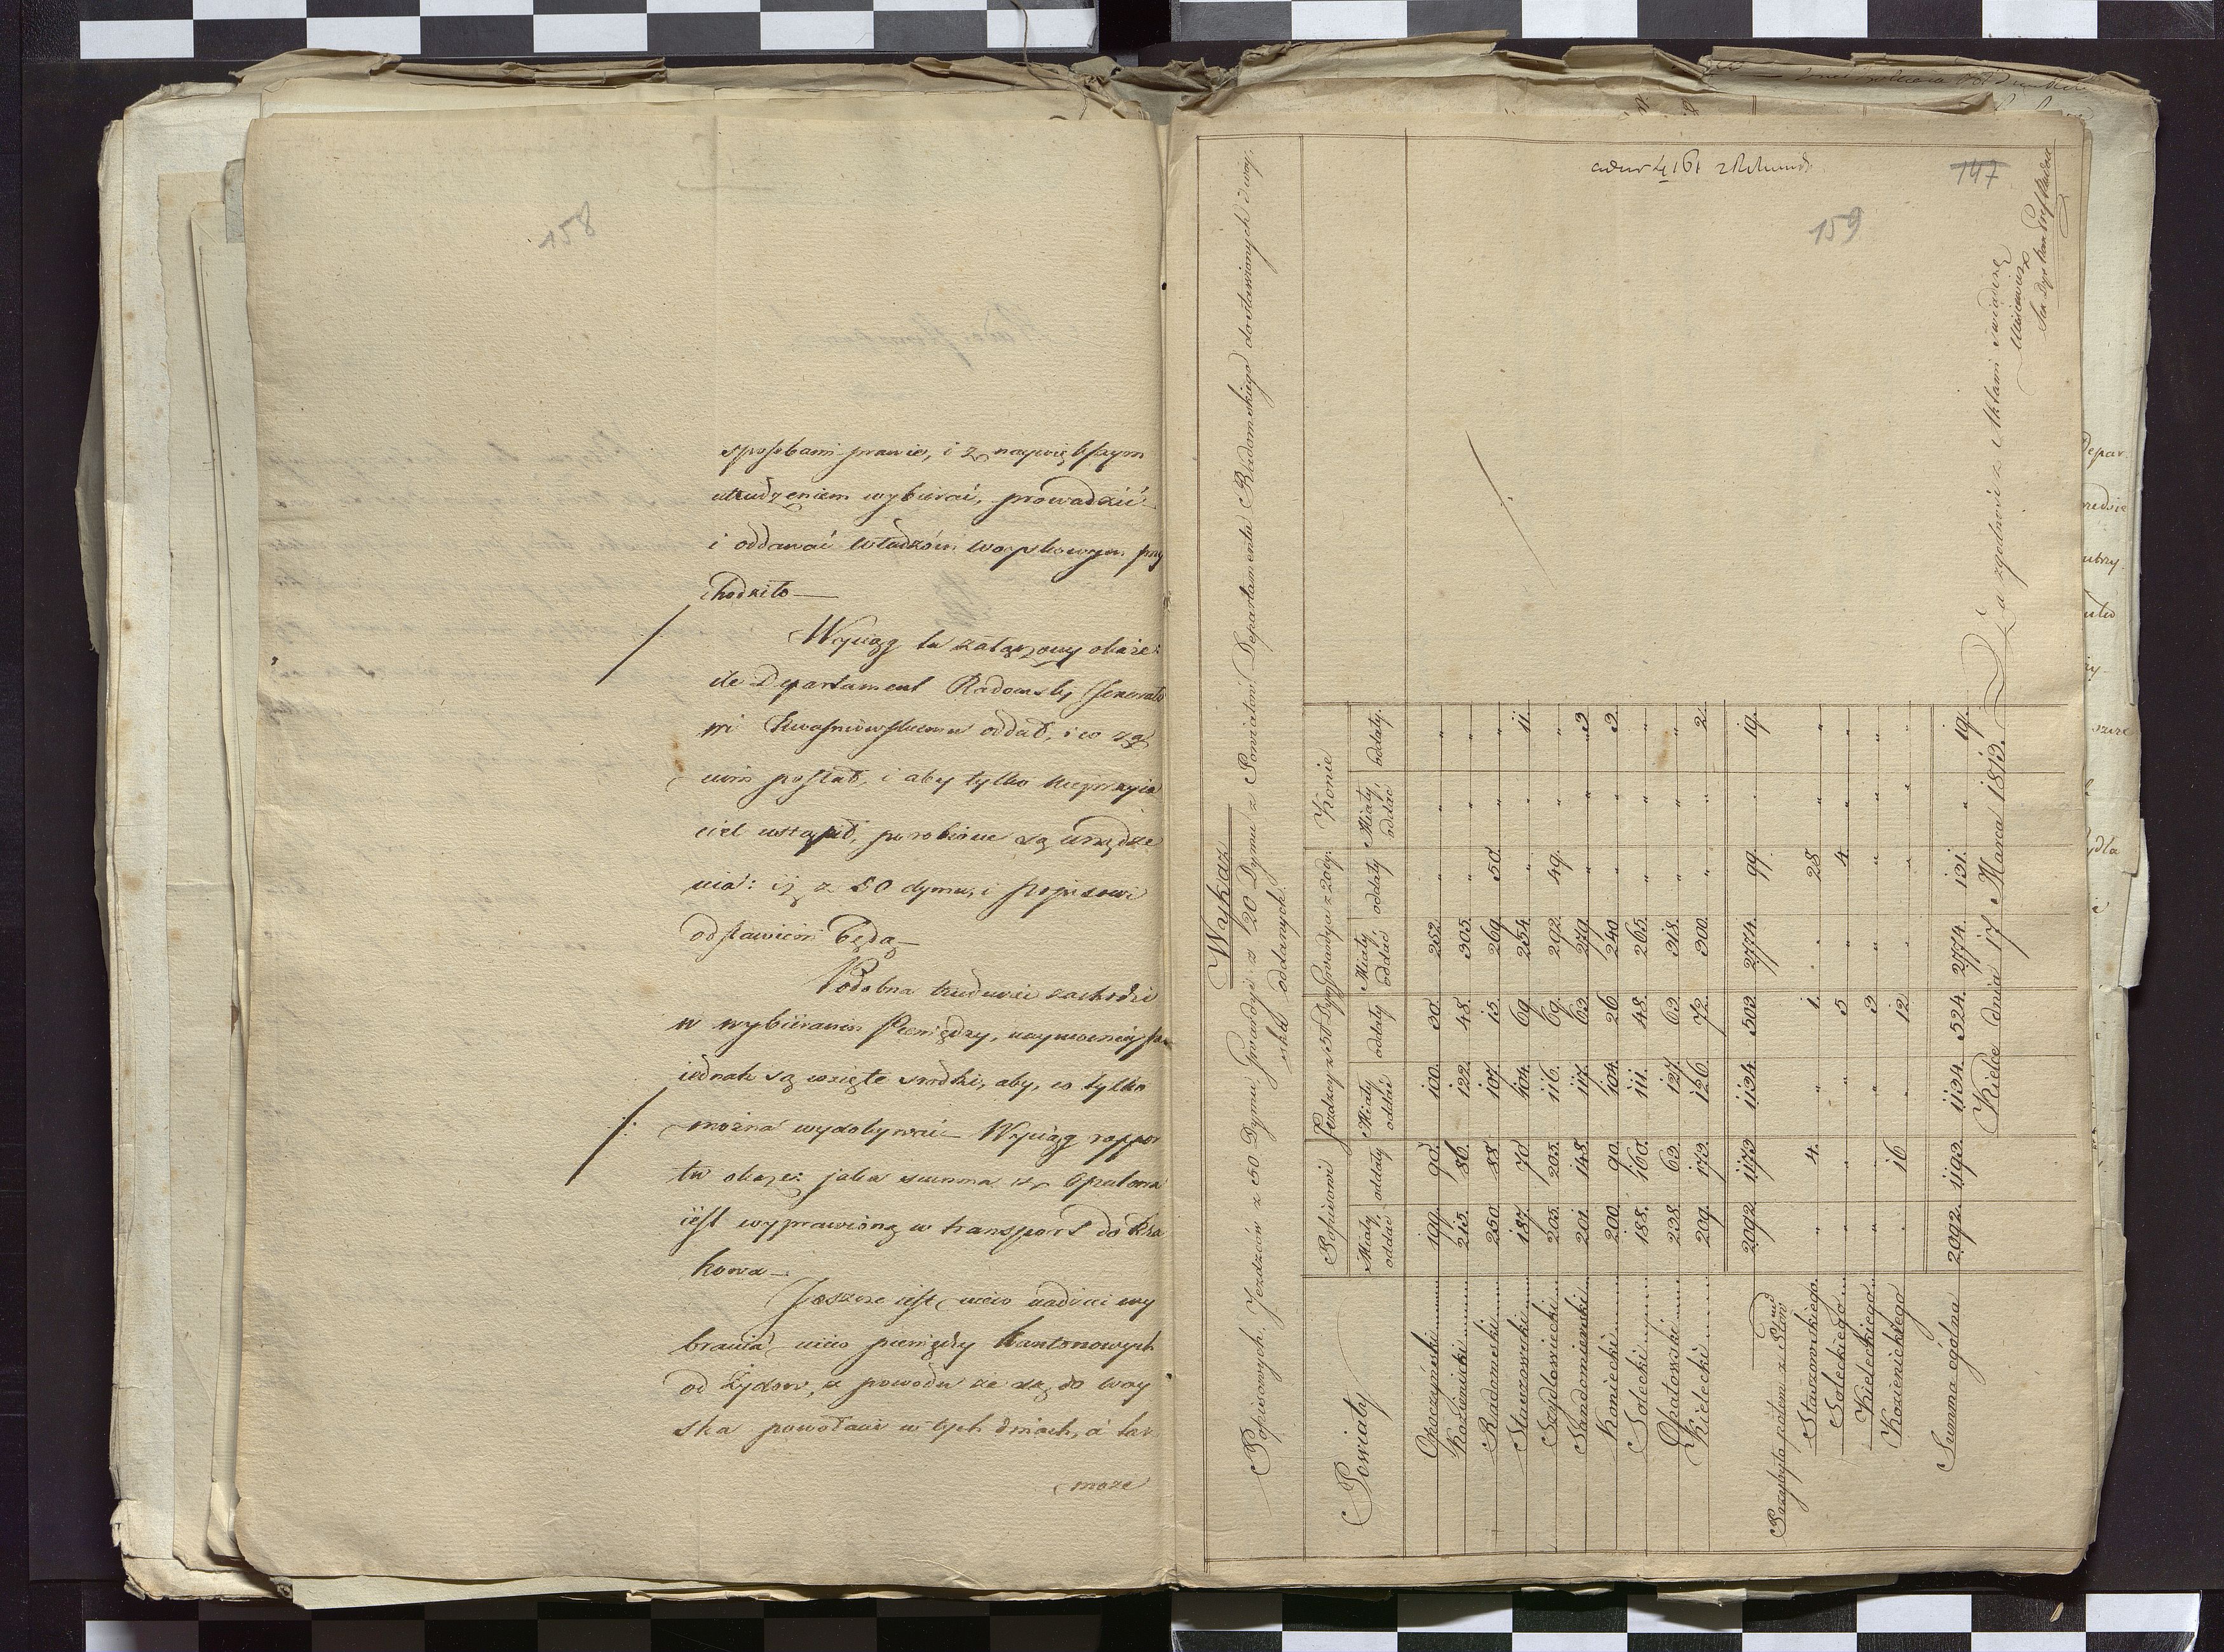 158
sposobami prawie, i z naywiększym
utrudzeniem wybierać, prowadzić
i oddawać Władzom woyskowym przy
chodziło—
Wyciąg tu załączony okaże:
ile Departament Radomski Jenerało
wi Kwaśniewskiemu oddał, i co za
nim posłał, i aby tylko Nieprzyia
ciel ustąpił, porobione są urządze
nia: iż z 50 dymu, i popisowi
odstawieni będą—
Podobna trudność zachodzi
w wybieraniu Pieniędzy, naymocniejsze
iednak są wzięte srodki, aby, co tylko
można wydobywać— Wyciąg rappor
tu okaże: jaka summa z Opatowa
iest wyprawioną w transport do Kra
kowa—
Jeszcze iest nieco nadziei wy
brania nieco pieniędzy Kantonowych
od Żydow, z powodu że są do woy
ska powołani w tych dniach, a tak
może
147
159
Wykaz
Popisowych, Jezdzców z 50. Dymu Gwardyi z 20 Dymu z Powiatów Departamentu Radomskiego dostawionych i woy-
sku oddanych.
Powiaty | Popisowi | Jezdzcy z 50 Dym | Gwardya z 20 dy. | Konie
Miały oddać | oddały | Miały oddać | oddały | Miały oddać | oddały | Miały oddać | oddały.
Opoczyński | 199. | 90. | 100. | 30. | 252. | " | " | "
Kozienicki | 213. | 86. | 122. | 48. | 303. | " | " | "
Radomski | 250. | 88. | 107. | 15. | 269. | 50. | " | "
Staszowski | 187. | 70. | 104. | 69. | 254. | " | " | 11.
Szydłowiecki | 205. | 203. | 116. | 69. | 292. | 49. | " | "
Sandomierski | 201. | 148. | 117. | 63. | 270. | " | " | 3.
Koniecki | 200. | 90. | 104. | 26. | 240. | " | " | 3.
Solecki | 188. | 160. | 111. | 48. | 265. | " | " | "
Opatowski | 238. | 63. | 127. | 63. | 318. | " | " | "
Kielecki | 209. | 173. | 126. | 72. | 300. | " | " | 2.
2092. | 1173. | 1134. | 503. | 2774. | 99. | " | 19.
Przybyło potem z Pttów
Staszowskiego | " | 4. | " | 1. | " | 28. | " | "
Soleckiego | " | " | " | 5. | " | 4. | " | "
Kieleckiego | " | " | " | 3. | " | " | " | "
Kozienickiego | " | 16 | " | 12. | " | " | " | "
Summa ogólna | 2092. | 1193. | 1134. | 524. | 2774. | 131. | " | 19.
Kielce dnia 17 Marca 1813.
Za zgodność z Aktami świadczę